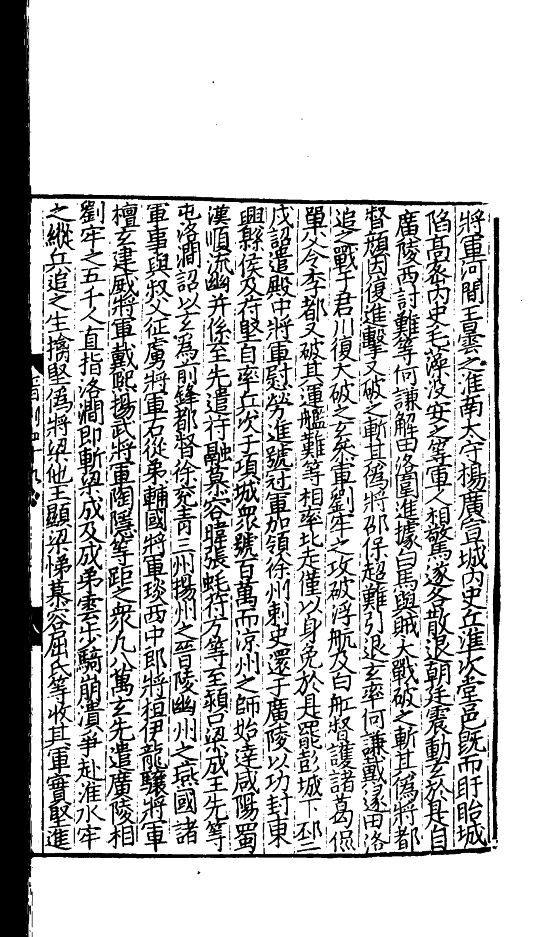 將軍河間王曇之淮南太守楊廣宣城內史丘準次堂邑旣而盱眙城
陷高密內史毛藻沒安之等軍人相驚遂各散退朝廷震動玄於是自
廣陵西討難等何謙解田洛圍進據白馬與賊大戰破之斬其僞將都
督顏因復進擊又破之斬其僞將邵保超難引退玄率何謙戴遂田洛
追之戰于君川復大破之玄參軍劉牢之攻破浮航及白船督護諸葛侃
單父令李都又破其運艦難等相率北走僅以身免於是罷彭城下邳二
戍詔遣殿中將軍慰勞進號冠軍加領徐州刺史還于廣陵以功封東
興縣侯及苻堅自率兵次于項城衆號百萬而涼州之師始達咸陽蜀
漢順流幽并係至先遣苻融慕容暐張蚝苻方等至潁口梁成王先等
屯洛澗詔以玄爲前鋒都督徐兗青三州揚州之晉陵幽州之燕國諸
軍事與叔父征虜將軍石從弟輔國將軍琰西中郎將桓伊龍驤將軍
檀玄建威將軍戴熙揚武將軍陶隱等距之衆凡八萬玄先遣廣陵相
劉牢之五千人直指洛澗即斬梁成及成弟雲步騎崩潰爭赴淮水牢
之縱兵追之生擒堅僞將梁他王顯梁悌慕容屈氏等收其軍實堅進